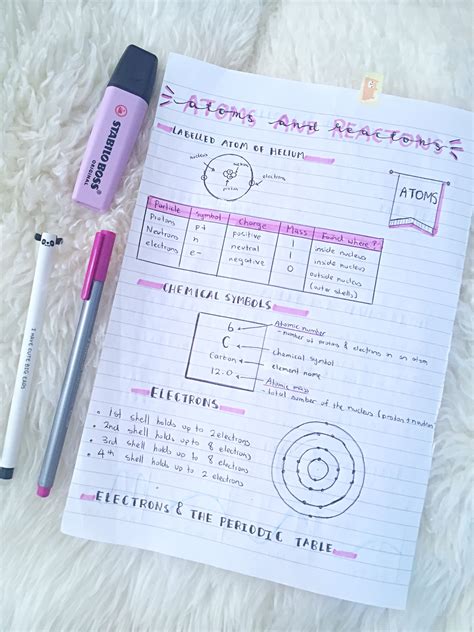 ATOMS AND REACTONS
atoms and reactons
LABELLED ATOM OF HELIUM
nucleus
neutron
electrons
proton
ATOMS
Particle Symbol Charge Mass Found where?
Protons p+ positive 1 inside nucleus
Neutrons n neutral 1 inside nucleus
electrons e- negative 0 outside nucleus
(outer shells)
CHEMICAL SYMBOLS
6
Atomic number
- number of protons & electrons in an atom
C
chemical symbol
Carbon
element name
12.0
Atomic mass
- total number of the nucleus (proton + neutron
ELECTRONS
• 1st shell holds up to 2 electrons
• 2nd shell holds up to 8 electrons
• 3rd shell holds up to 8 electrons
• 4th shell holds up to 2 electrons
ELECTRONS & THE PERIODIC TABLE
STABILO BOSS
ORIGINAL
I HAVE CUTE BIG EARS